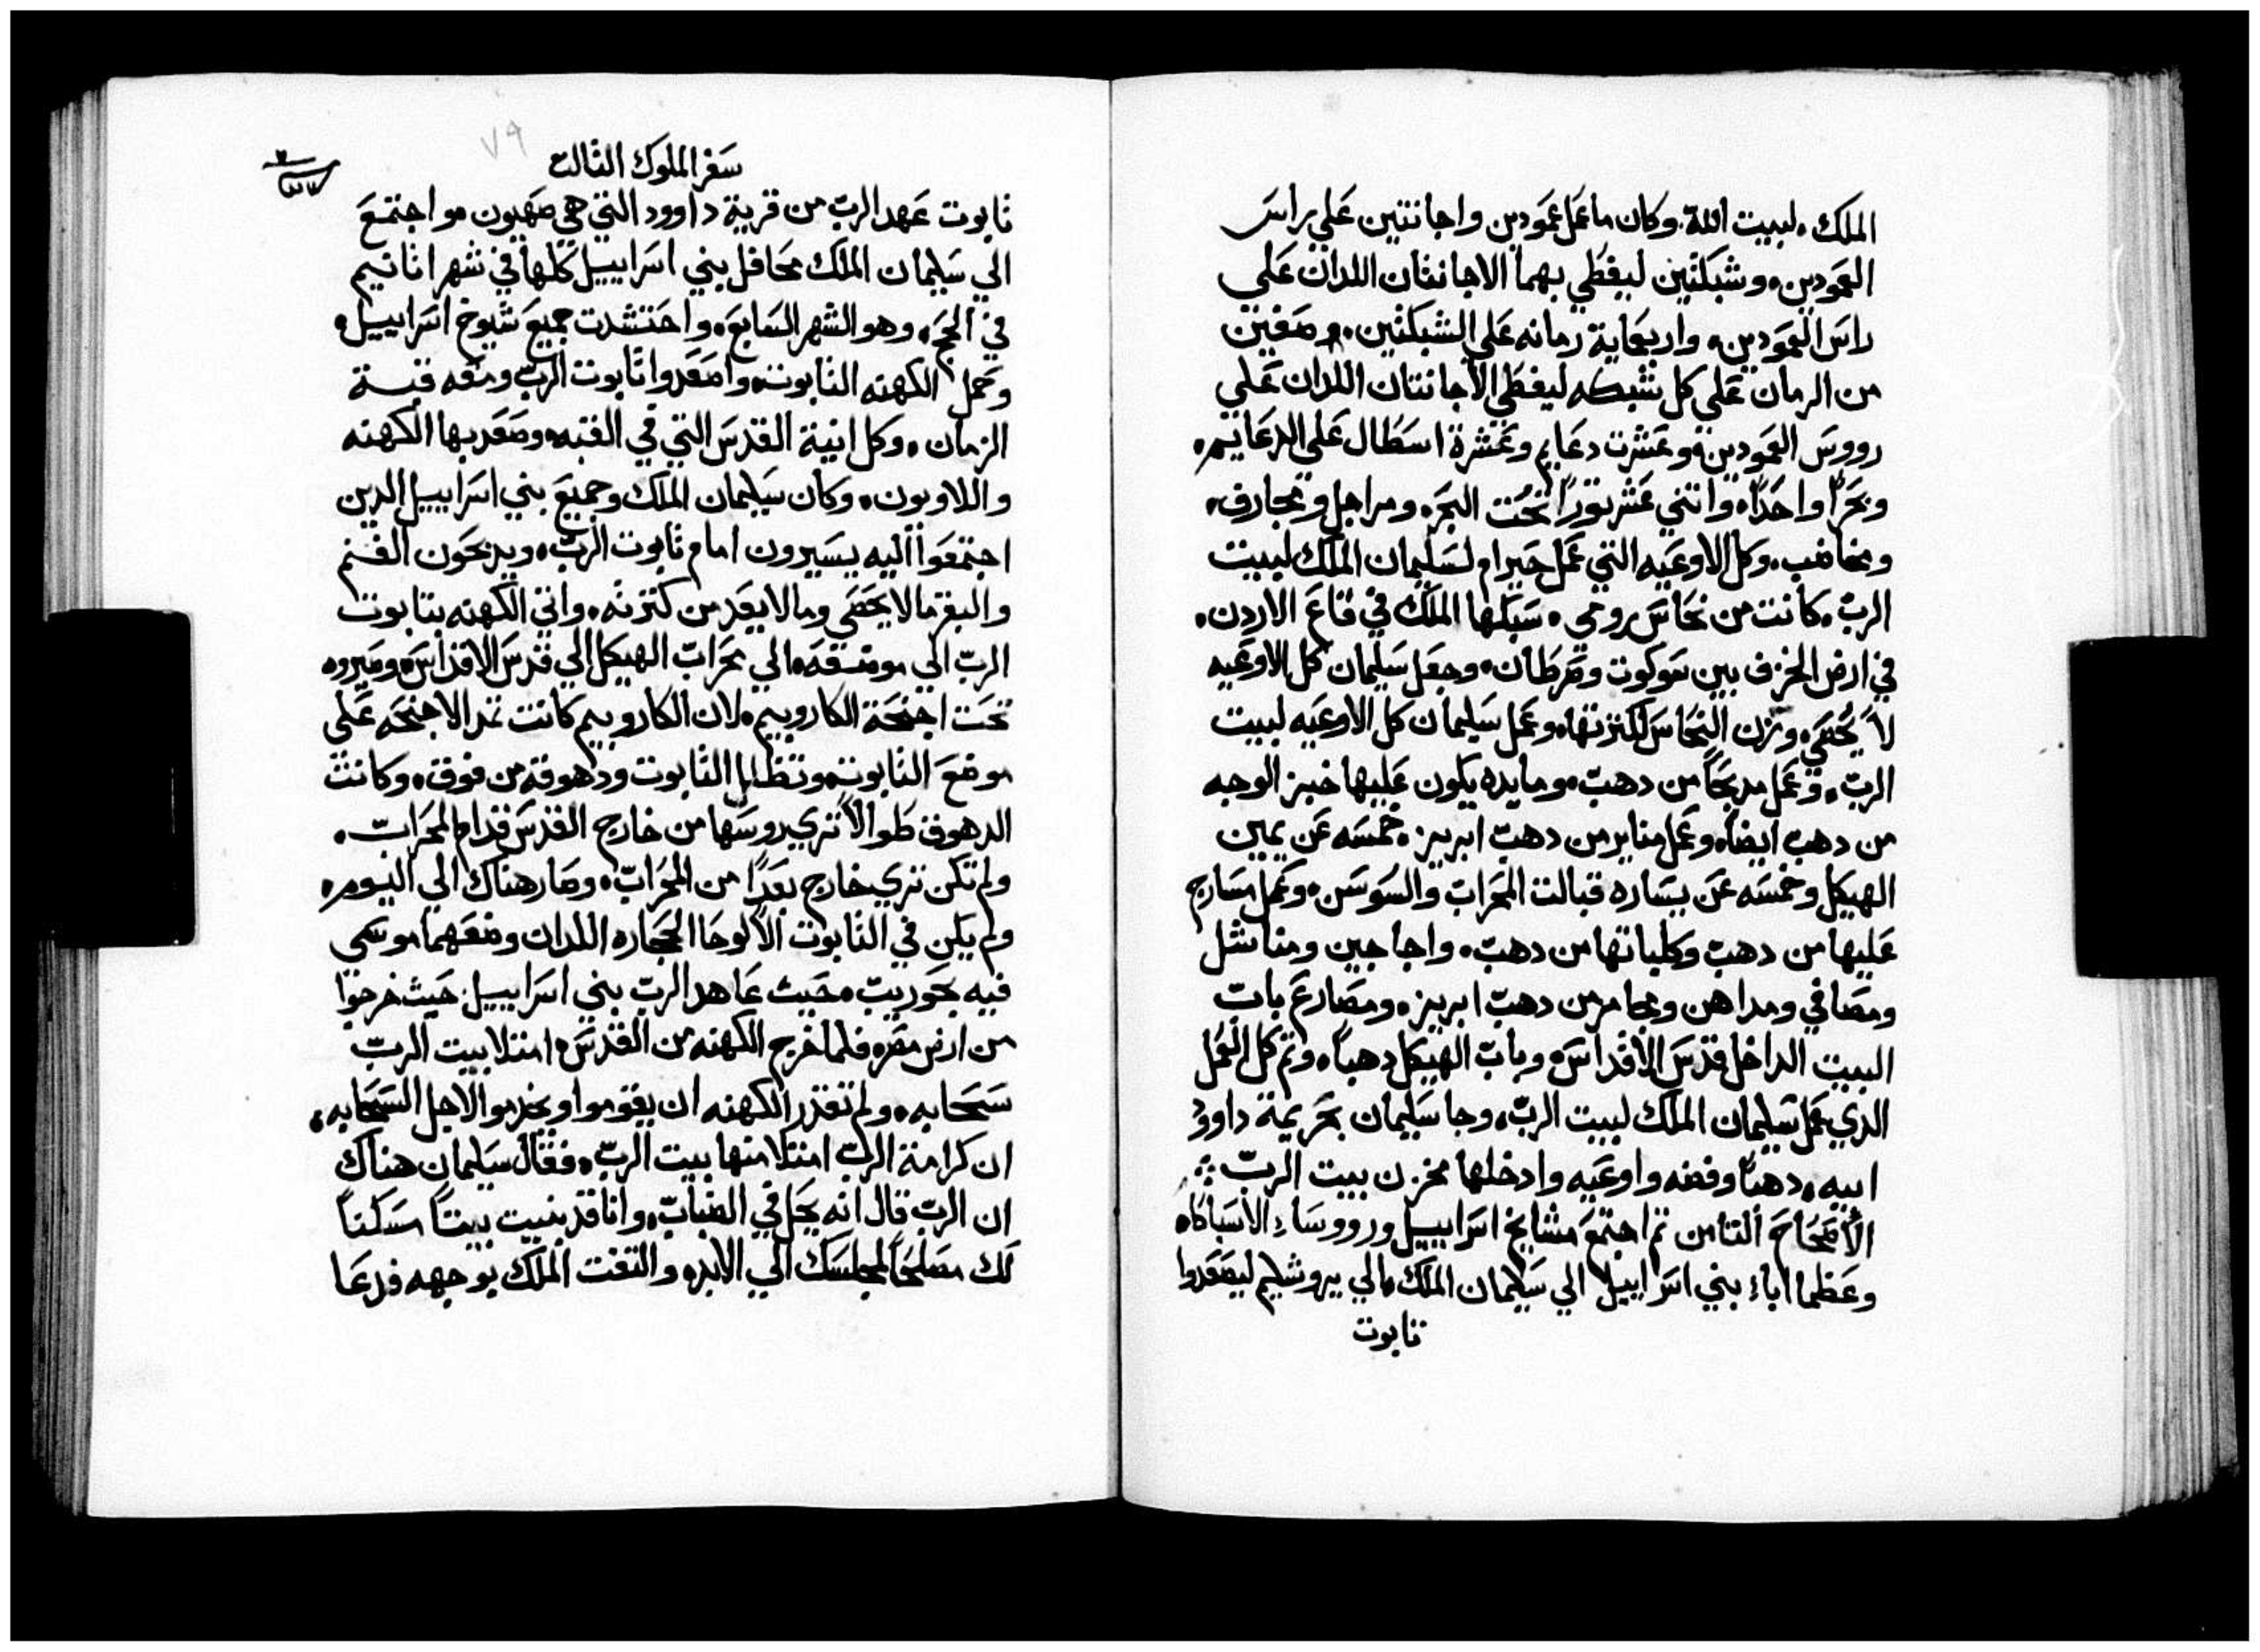 الملك، لبيت الله. وكان ما عمل عمودين واجانتين علي راس
العمودين، وشبكتين ليغطي بهما الاجانتان اللدان علي
راس العمودين، واربعماية رمانه علي الشبكتين، صفين
من الرمان علي كل شبكه ليغطي الاجانتان اللدان علي
رووس العمودين، وعشرت دعايم وعشرة اسطال علي الدعايم،
وبحرًا واحدًا، واتني عشر تورًا تحت البحر، ومراجل ومجارف،
ومخاضب، وكل الاوعيه التي عمل حيرام لسليمان الملك لبيت
الرب، كانت من نحاس رومي، سبكها الملك في قاع الاردن،
في ارض الخزف بين سوكوت وصرطان، وجعل سليمان كل الاوعيه
لا يحصي، وزن النحاس لكترتها، وعمل سليمان كل الاوعيه لبيت
الرب، وعمل مدبحًا من دهب، ومايده يكون عليها خبز الوجه
من دهب ايضًا، وعمل مناير من دهب ابريز، خمسه عن يمين
الهيكل وخمسه عن يساره قبالت المحراب والسوسن، وعمل مسارج
عليها من دهب وكلباتها من دهب، واجاجين ومناشل
ومصافي ومداهن ومجامر من دهب ابريز، ومصارع باب
البيت الداخل قدس الاقداس، وباب الهيكل دهبًا، وتم كل العمل
الدي عمل سليمان الملك لبيت الرب، وجا سليمان بحريمة داوود
ابيه، دهبًا وفضه واوعيه وادخلها مخزن بيت الرب
الاصحاح التامن تم اجتمع مشايخ اسراييل ورووساء الاسباكاه
وعظما اباء بني اسراييل الي سليمان الملك، الي يروشليم ليصعدوا
تابوت
٧٩
سفر الملوك التالت
تابوت عهد الرب من قرية داوود التي هي صهيون، واجتمع
الي سليمان الملك محافل بني اسراييل كلها في شهر اتانيم
في الحج، وهو الشهر السابع، واحتشدت جميع شيوخ اسراييل،
وحمل الكهنه التابوت، واصعدوا تابوت الرب ومعه قبة
الزمان، وكل انية القدس التي في القبه، وصعد بها الكهنه
واللاويون، وكان سليمان الملك وجميع بني اسراييل الدين
اجتمعوا اليه يسيرون امام تابوت الرب، ويدبحون الغنم
والبقر مالا يحصي ومالا يعد من كترته، واتي الكهنه بتابوت
الرب الي موضعه، الي محراب الهيكل الي قدس الاقداس، وصيروه
تحت اجنحة الكاروبيم، لان الكاروبيم كانت تمد الاجنحه علي
موضع التابوت، وتظلل التابوت ودهوقه من فوق، وكانت
الدهوق طوالًا تري روسها من خارج القدس قدام المحراب،
ولم تكن تري خارج بعدًا من المحراب، وصار هناك الي اليوم،
ولم يكن في التابوت الا لوحا الحجاره اللدان وضعهما موسي
فيه بحوريب، حيث عاهد الرب بني اسراييل حيث خرجوا
من ارض مصر، فلما خرج الكهنه من القدس، امتلا بيت الرب
سحابه، ولم تقدر الكهنه ان يقوموا ويخدموا لاجل السحابه،
ان كرامة الرب امتلا منها بيت الرب، فقال سليمان هناك
ان الرب قال انه يحل في الضباب، وانا قد بنيت بيتًا مسكنًا
لك مصلحًا لمجلسك الي الابد، والتفت الملك بوجهه فدعا